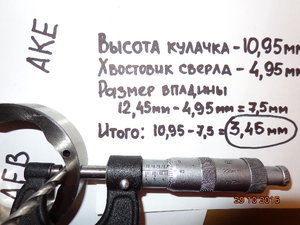 AKE
Высота кулачка - 10,95мм
Хвостовик сверла - 4,95мм
Размер впадины
12,45мм - 4,95мм = 7,5мм
Итого: 10,95 - 7,5 = 3,45мм
AFB
29 10 2015